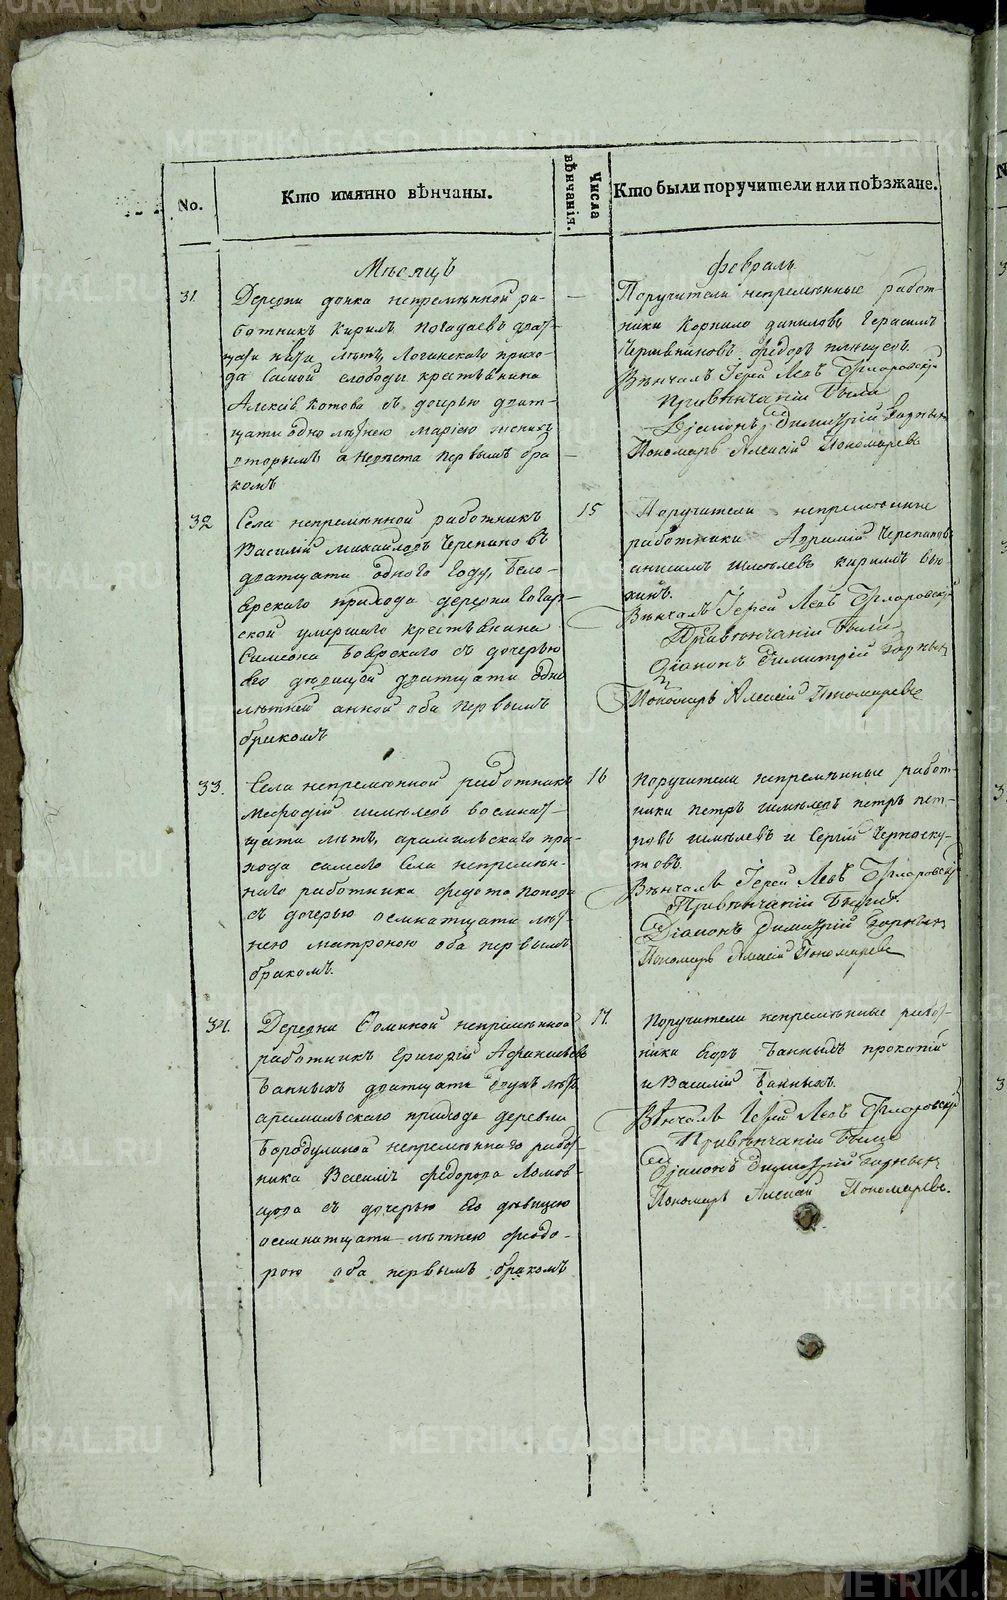 No.
Кто имянно вѣнчаны.
Числа вѣнчанія.
Кто были поручители или поѣзжане.
Мѣсяцъ
февраль
31.
Деревни
непремѣнной ра-
ботникъ Кирилъ Погадаевъ
лѣтъ, Логинскаго прихо-
да самой слободы крестьянина
Алексѣя Котова съ дочерью дват-
цати одно лѣтнею Маріею женихъ
вторымъ а невѣста первымъ бра
комъ
Поручители непремѣнные работ-
ники Корнило Даниловъ Герасимъ
Черепановъ федоръ
Вѣнчалъ Іерей Левъ
При вѣнчаніи были
Діаконъ Димитрій
Пономарь Алексій Пономаревъ
32
Села непремѣнной работникъ
Василій Михайловъ Черепановъ
дватцати одного году, Бело-
ярскаго прихода деревни
ской умершаго крестьянина
Симеона Боярскаго съ дочерью
его дѣвицой дватцати одно
лѣтней анной оба первымъ
бракомъ
15
Поручители непремѣнные
работники Черепановъ
анисимъ Шмелевъ кирилъ
Вѣнчалъ Іерей Левъ
При вѣнчаніи были
Діаконъ Димитрій
Пономарь Алексій Пономаревъ
33.
Села непремѣнной работникъ
Мефодій Шмелевъ восемнат-
цати лѣтъ, арамильскаго при-
хода самаго села непремѣн-
наго работника федота Попова
съ дочерью осмнатцати лѣт
нею матроною оба первымъ
бракомъ.
16
Поручители непремѣнные работ-
ники петръ шмелевъ петръ пет-
ровъ шмелевъ и Сергій Черноску-
товъ.
Вѣнчалъ Іерей Левъ
При вѣнчаніи были
Діаконъ Димитрій
Пономарь Алексій Пономаревъ
34.
Деревни Фоминой непремѣнной
работникъ Григорій Афанасьевъ
Банныхъ дватцати двухъ лѣтъ
арамильскаго прихода деревни
Бородулиной непремѣннаго работ
ника Василья федорова
съ дочерью его дѣвицею
осемнатцати лѣтнею феодо-
рою оба первымъ бракомъ
17.
Поручители непремѣнные работ-
ники Егоръ Банныхъ прокопій
и Василій Банныхъ.
Вѣнчалъ Іерей Левъ
При вѣнчаніи были
Діаконъ Димитрій
Пономарь Алексій Пономаревъ.
METRIKI.GASO-URAL.RU